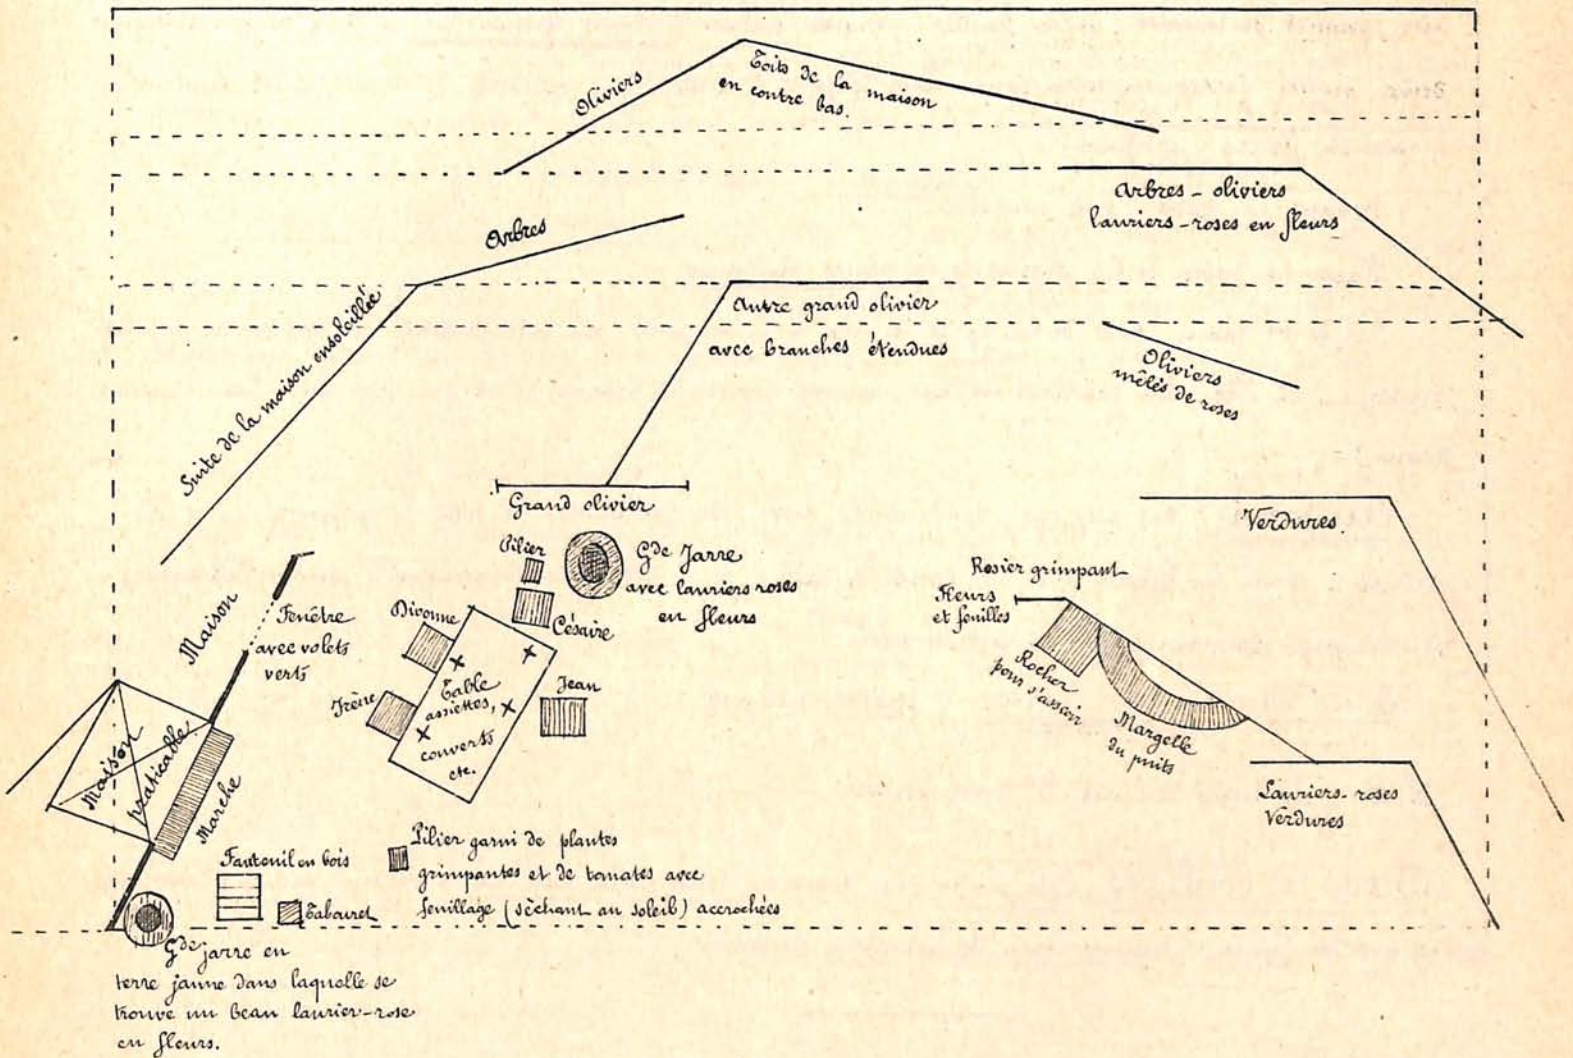 Oliviers
Toits de la maison
en contre bas.
Arbres - oliviers
lauriers-roses en fleurs
Arbres
Suite de la maison ensoleillée
Autre grand olivier
avec branches étendues
Oliviers
mêlés de roses
Grand olivier
Verdures.
Pilier
Gde Jarre
avec lauriers roses
en fleurs
Césaire
Divonne
Rosier grimpant
Fleurs
et feuilles
Maison
Fenêtre
avec volets
verts
Irène
Table
assiettes,
couverts
etc.
Jean
Rocher
pour s'assoir
Margelle
du puits
Maison
praticable
Marche
Lauriers-roses
Verdures
Fauteuil en bois
Tabouret
Pilier garni de plantes
grimpantes et de tomates avec
feuillage (sèchant au soleil) accrochées
Gde jarre en
terre jaune dans laquelle se
trouve un beau laurier-rose
en fleurs.